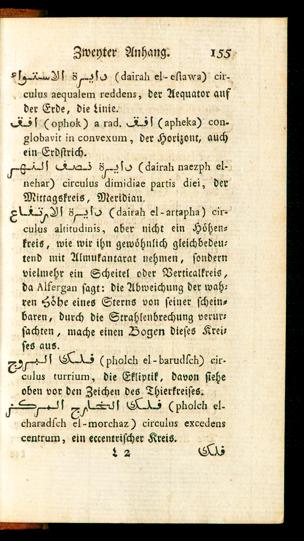 Zweyter Anhang. 155
دايرة الاستوا (dairah el-eſtawa) cir-
culus aequalem reddens, der Aequator auf
der Erde, die Linie.
افق (ophok) a rad. افق (apheka) con-
globavit in convexum, der Horizont, auch
ein Erdſtrich.
دايرة نصف النهر (dairah naezph el-
nehar) circulus dimidiae partis diei, der
Mittagskreis, Meridian.
دايرة الارتفاع (dairah el-artapha) cir-
culus altitudinis, aber nicht ein Höhen-
kreis, wie wir ihn gewöhnlich gleichbedeu-
tend mit Almukantarat nehmen, ſondern
vielmehr ein Scheitel oder Verticalkreis,
da Alfergan ſagt: die Abweichung der wah-
ren Höhe eines Sterns von ſeiner ſchein-
baren, durch die Strahlenbrechung verur-
ſachten, mache einen Bogen dieſes Krei-
ſes aus.
فلك البروج (pholch el-barudſch) cir-
culus turrium, die Ekliptik, davon ſiehe
oben vor den Zeichen des Thierkreiſes.
فلك الخارج المركز (pholch el-
charadſch el-morchaz) circulus excedens
centrum, ein eccentriſcher Kreis.
L 2 فلك